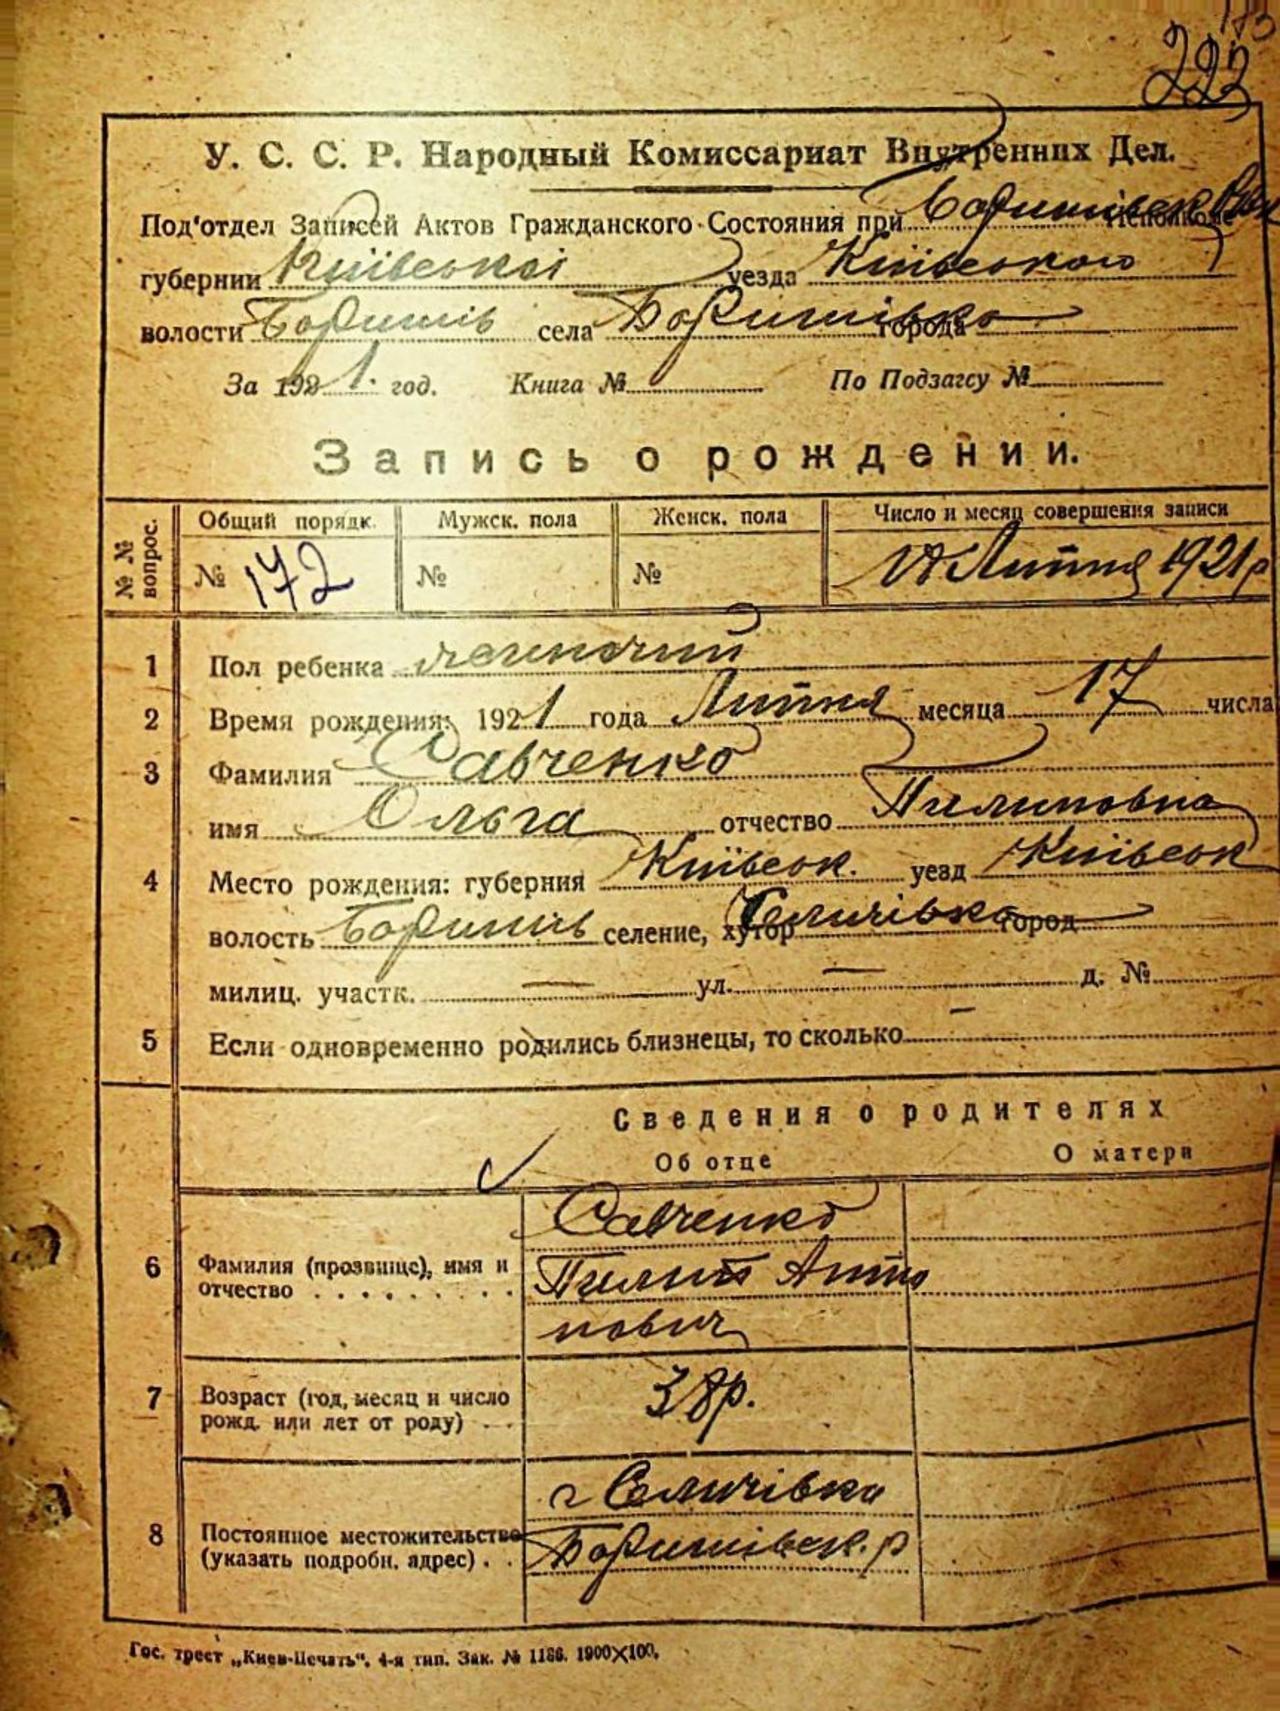 223
У. С. С. Р. Народный Комиссариат Внутренних Дел.
Под'отдел Записей Актов Гражданского Состояния при Боришівск Исполкоме
губернии Київської уезда Київського
волости Боришів села Боришівка города
За 1921. год. Книга № По Подзагсу №
Запись о рождении.
№ № вопрос. Общий порядк. Мужск. пола Женск. пола Число и месяц совершения записи
№ 172 № № Липня 1921 р
1 Пол ребенка жиночий
2 Время рождения: 1921 года Липня месяца 17 числа
3 Фамилия Савченко
имя Ольга отчество Пилиповна
4 Место рождения: губерния Київськ. уезд Київськ
волость Боришів селение, хутор Селичівка город
милиц. участк. — ул. — д. №
5 Если одновременно родились близнецы, то сколько –
Сведения о родителях
Об отце О матери
6 Фамилия (прозвище), имя и отчество Савченко
Пилип Анто
нович
7 Возраст (год, месяц и число рожд. или лет от роду) 38 р.
8 Постоянное местожительство (указать подробн. адрес) Селичівка
Боришівськ. р
Гос. трест „Киев-Печать". 4-я тип. Зак. № 1186. 1900×100.